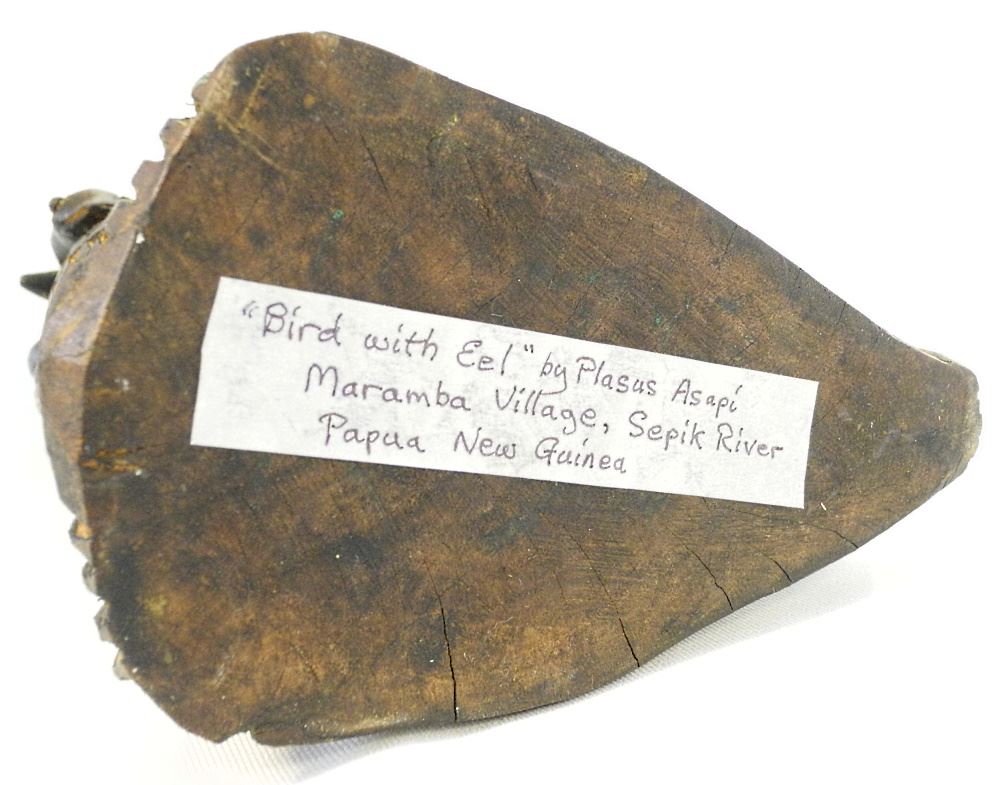 "Bird with Eel" by Plasus Asapi
Maramba Village, Sepik River
Papua New Guinea